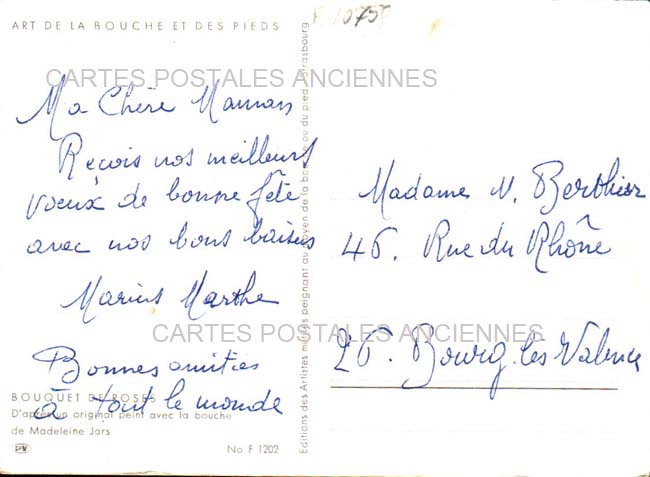 ART DE LA BOUCHE ET DES PIEDS
CARTES POSTALES ANCIENNES
Ma Chère Maman
Reçois nos meilleurs
voeux de bonne fête
avec nos bons baisers
Marius Marthe
Bonnes amitiés
à tout le monde
BOUQUET DE ROSES
D'après un original peint avec la bouche
de Madeleine Jars
No F 1202
Editions des Artistes mutilés peignant au moyen de la bouche ou du pied, Strasbourg
Madame V. Berthier
46. Rue du Rhône
CARTES POSTALES ANCIENNES
26. Bourg-lès Valence